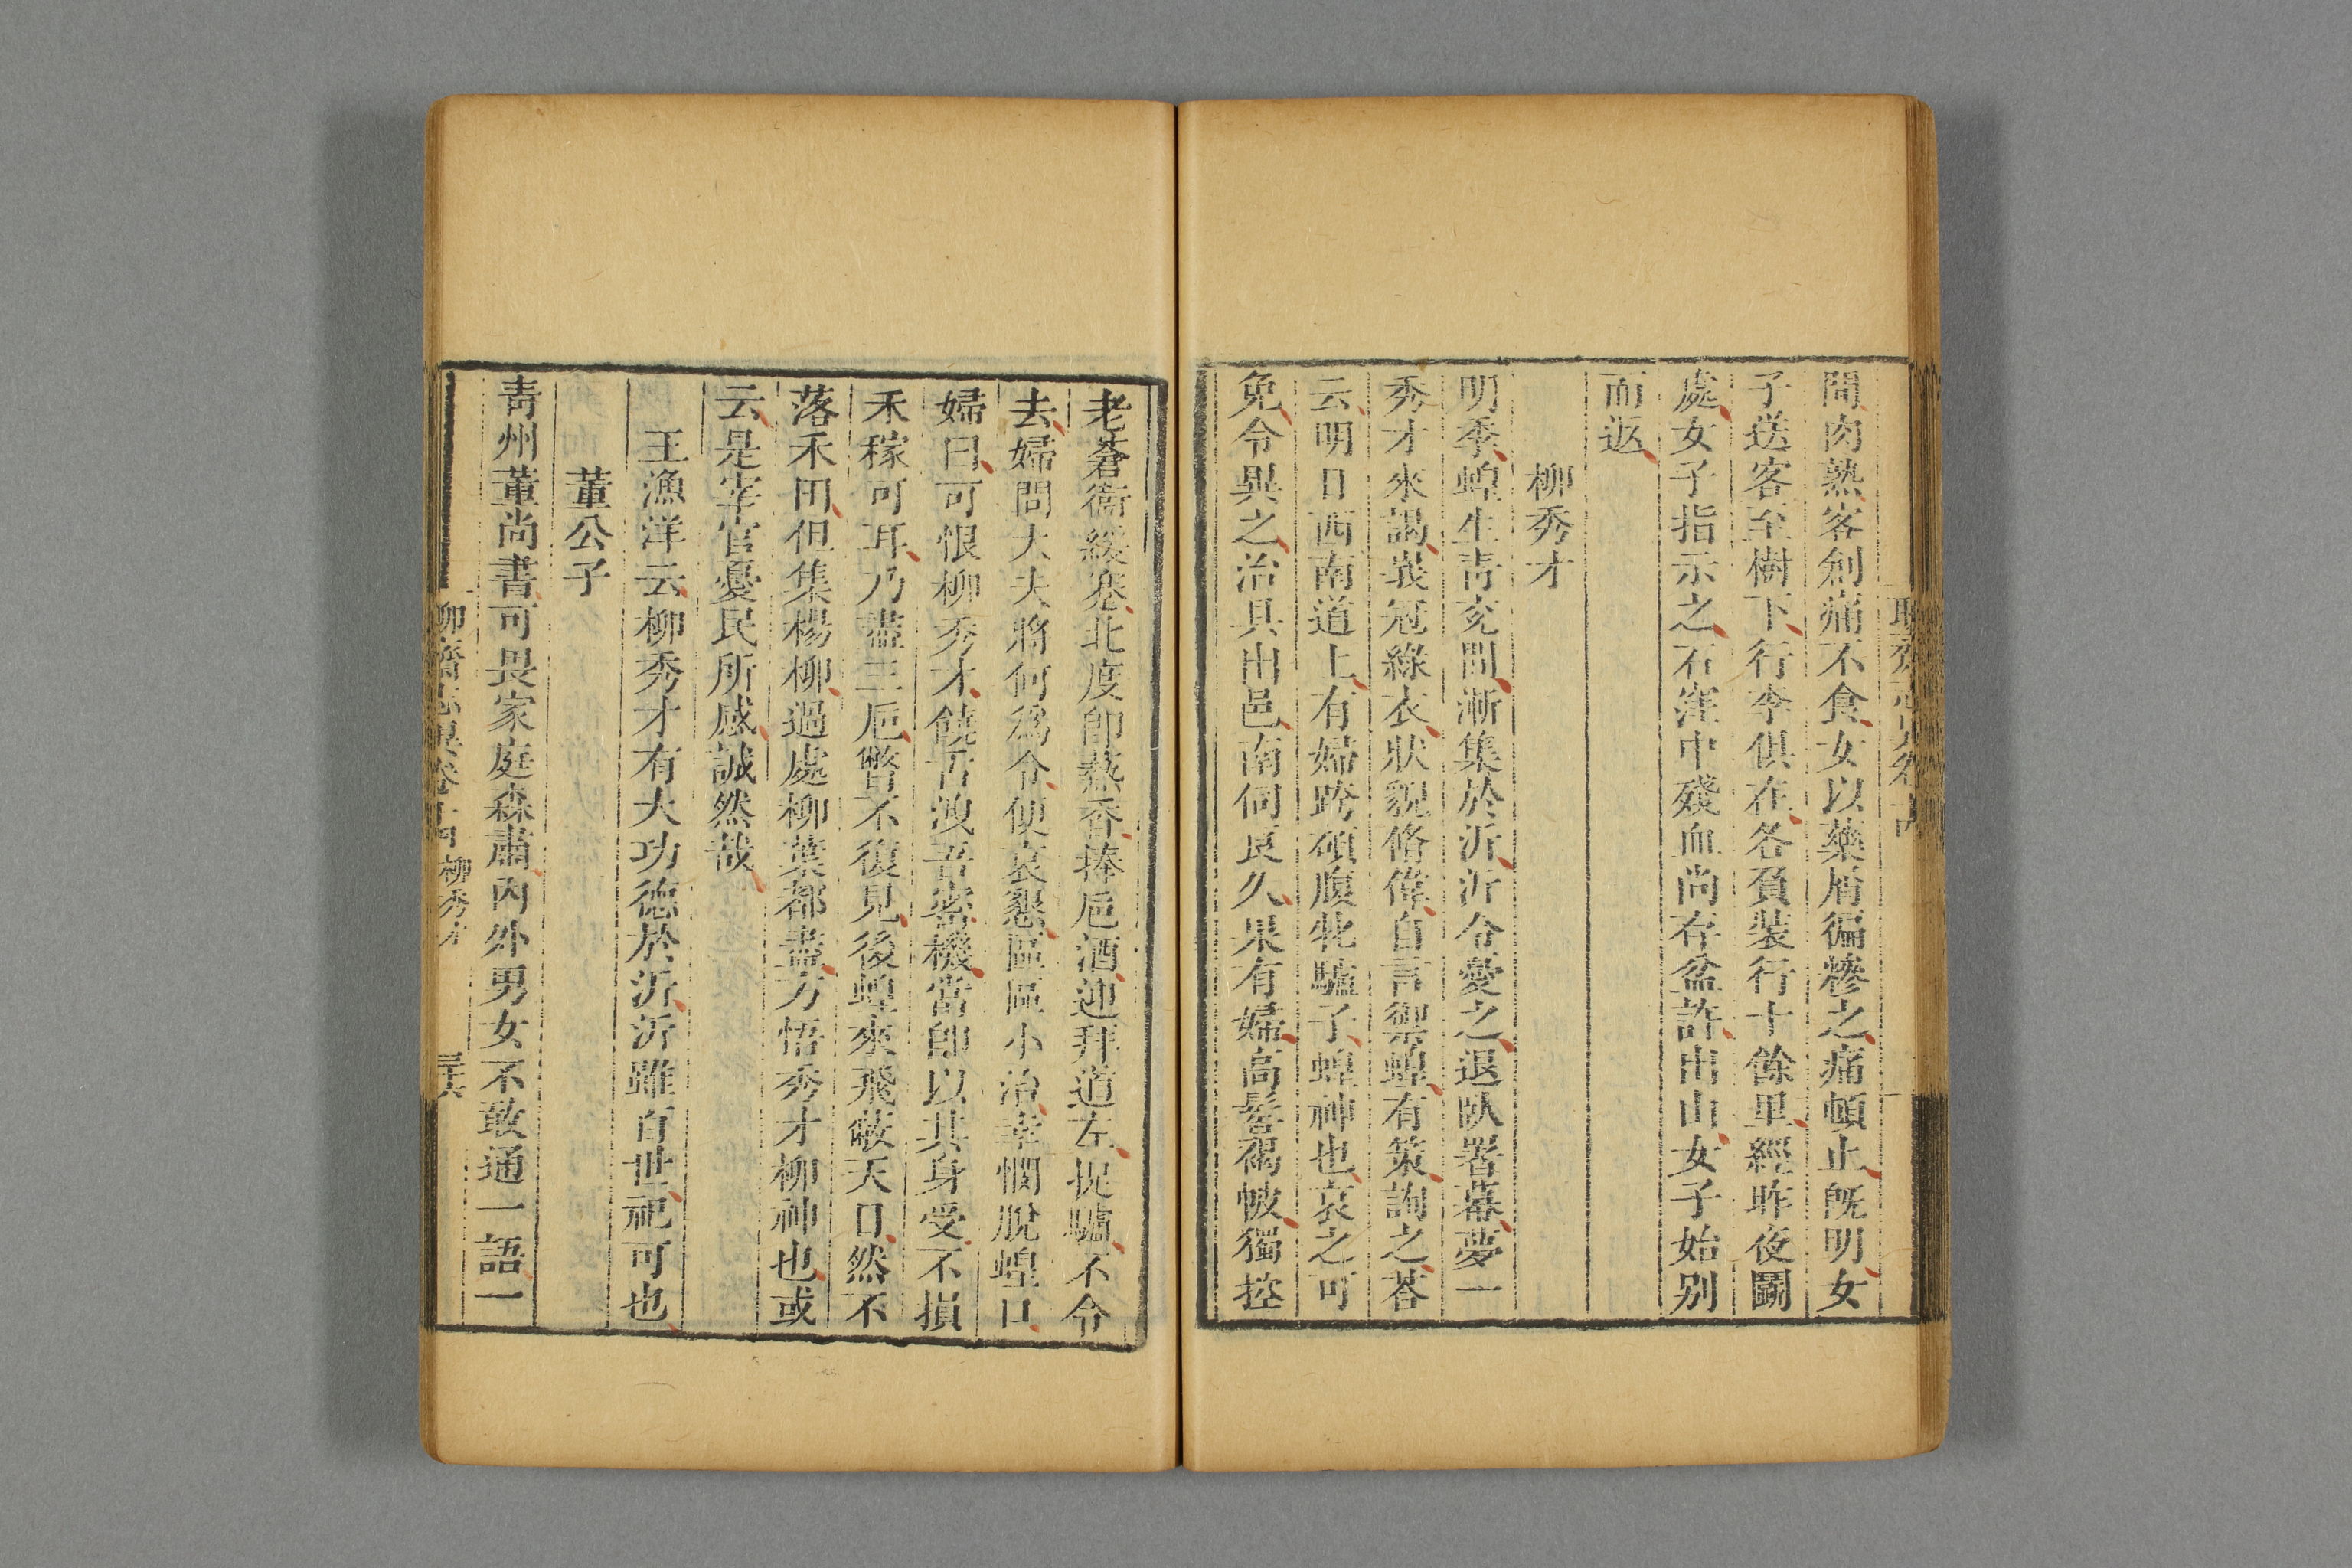 聊齋志異卷十四
間肉熟客創痛不食女以藥屑徧糝之痛頓止既明女
子送客至樹下行李俱在各負裝行十餘里經昨夜鬭
處女子指示之石窪中殘血尚存盆許出山女子始别
而返
柳秀才
明季蝗生青兖間漸集於沂沂令憂之退臥署幕夢一
秀才來謁峩冠綠衣狀貌修偉自言禦蝗有策詢之荅
云明日西南道上有婦跨碩腹牝驢子蝗神也哀之可
免令異之治具出邑南伺良久果有婦高髻褐帔獨控
老蒼衛緩蹇北度卽爇香捧巵酒迎拜道左捉驢不令
去婦問大夫將何爲令便哀懇區區小治幸憫脫蝗口
婦曰可恨柳秀才饒舌洩吾密機當卽以其身受不損
禾稼可耳乃盡三巵瞥不復見後蝗來飛蔽天日然不
落禾田但集楊柳過處柳葉都盡方悟秀才柳神也或
云是宰官憂民所感誠然哉
王漁洋云柳秀才有大功德於沂沂雖百世祀可也
董公子
青州董尚書可畏家庭森肅內外男女不敢通一語一
聊齋志異卷十四 柳秀才 三十六